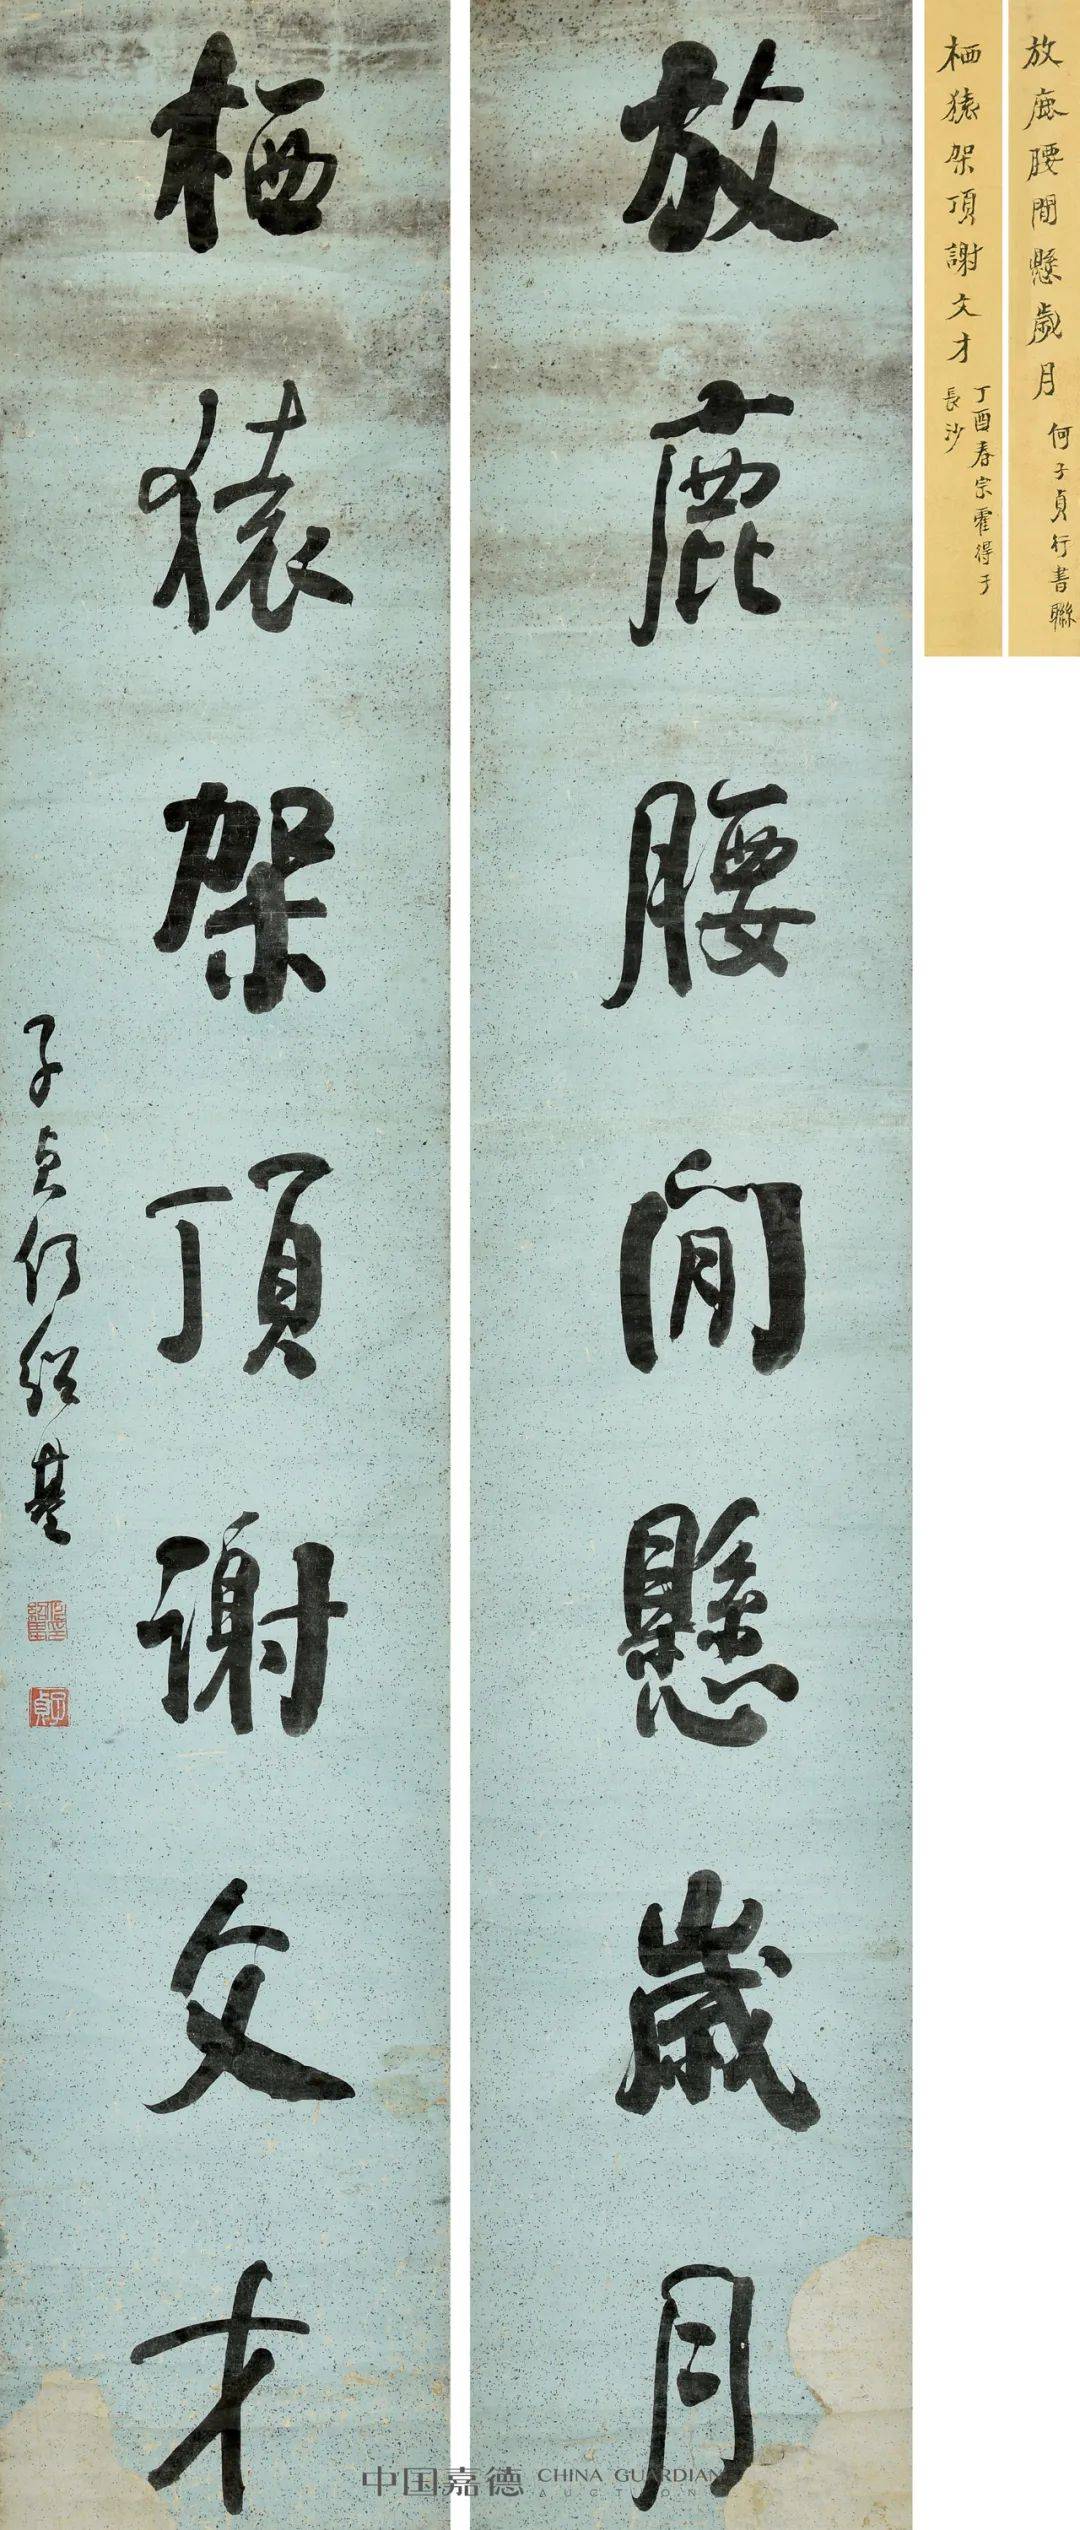 放鹿腰閒懸歲月
栖猿架頂謝文才
子貞何紹基
子貞
放鹿腰閒懸歲月
何子貞行書聯
栖猿架頂謝文才
丁酉春宗霍得于
長沙
中国嘉德 CHINA GUARDIAN
AUCTIONS